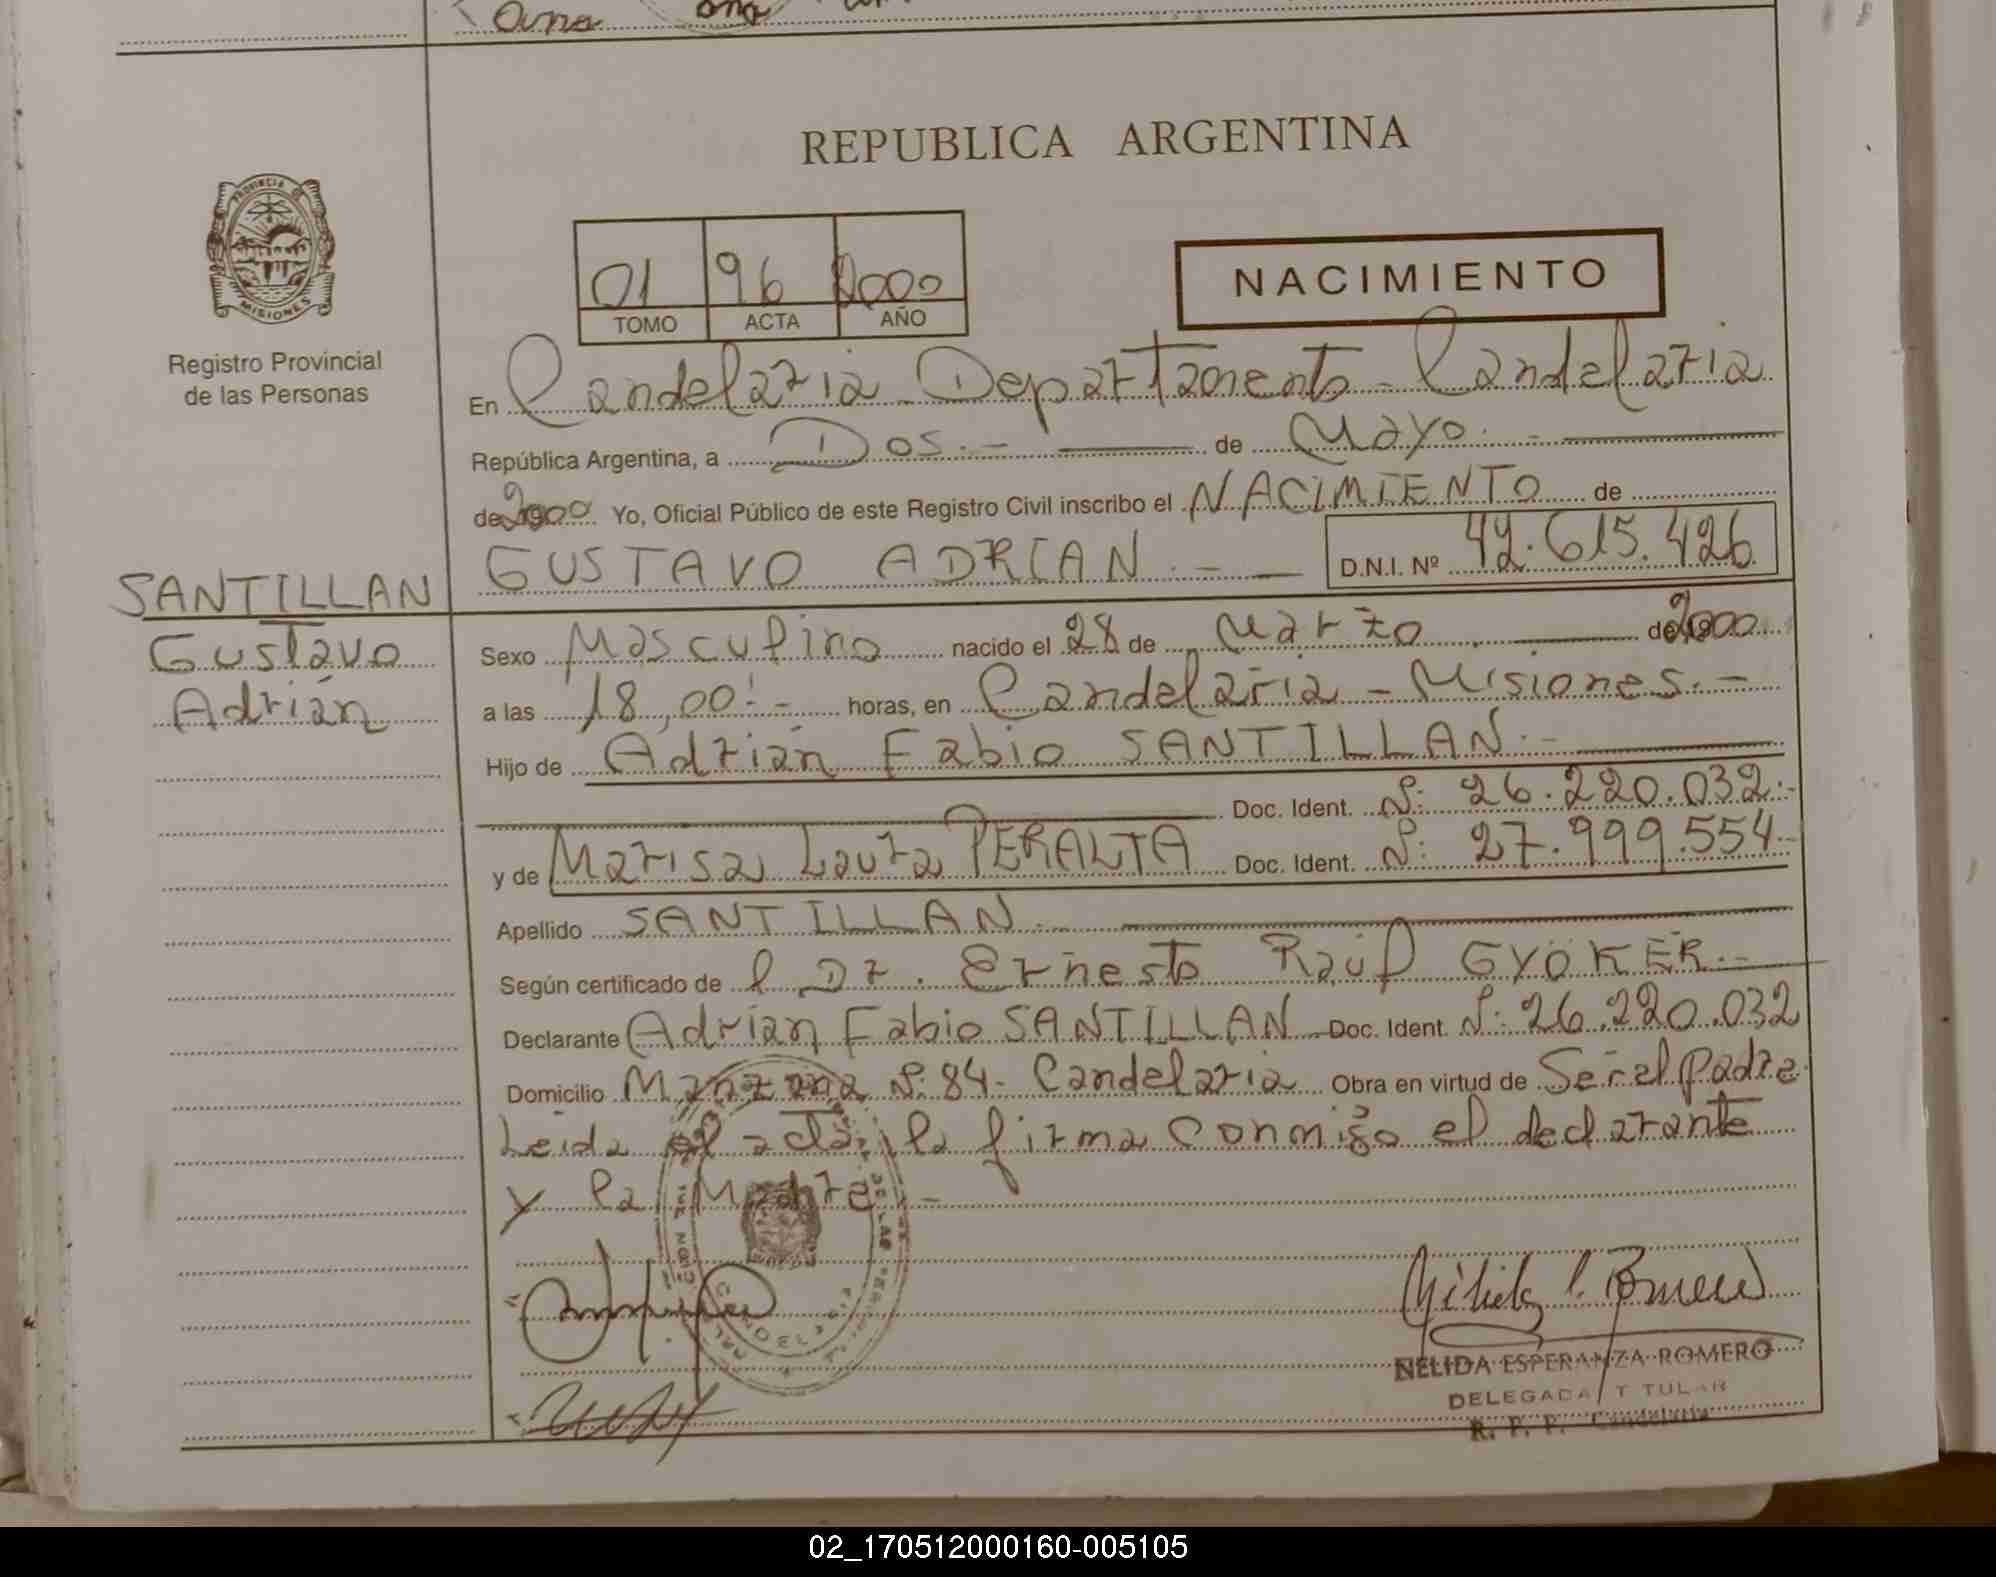 REPUBLICA ARGENTINA
PROVINCIA DE
MISIONES
Registro Provincial
de las Personas
01 96 2000
TOMO ACTA AÑO
NACIMIENTO
En Candelaria Departamento - Candelaria
República Argentina, a Dos.- de Mayo.-
de 2000 Yo, Oficial Público de este Registro Civil inscribo el NACIMIENTO de
GUSTAVO ADRIAN.- D.N.I. Nº 42.615.426
SANTILLAN
Gustavo
Adrián
Sexo Masculino nacido el 28 de Marzo de 2000
a las 18,00.- horas, en Candelaria - Misiones.-
Hijo de Adrián Fabio SANTILLAN.-
Doc. Ident. Nº: 26.220.032.-
y de Marisa Laura PERALTA Doc. Ident. Nº: 27.999.554
Apellido SANTILLAN.-
Según certificado de l Dr. Ernesto Raúl GYÖKER.-
Declarante Adrian Fabio SANTILLAN Doc. Ident. Nº: 26.220.032
Domicilio Manzana Nº: 84- Candelaria Obra en virtud de Ser el Padre
Leida el acta, la firma conmigo el declarante
y la Madre.-
NELIDA ESPERANZA ROMERO
DELEGADA TITULAR
R. P. P. Candelaria
02_170512000160-005105